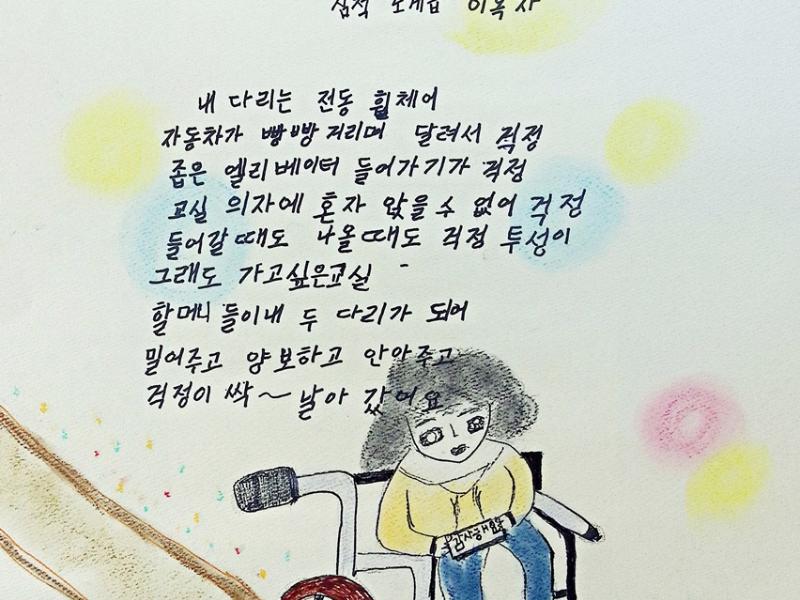 이옥자
내 다리는 전동 휠체어
자동차가 빵빵거리며 달려서 걱정
좁은 엘리베이터 들어가기가 걱정
교실 의자에 혼자 앉을 수 없어 걱정
들어갈때도 나올때도 걱정 투성이
그래도 가고싶은교실
할머니들이내 두 다리가 되어
밀어주고 양보하고 안아주고
걱정이 싹~ 날아 갔어요
감사해요